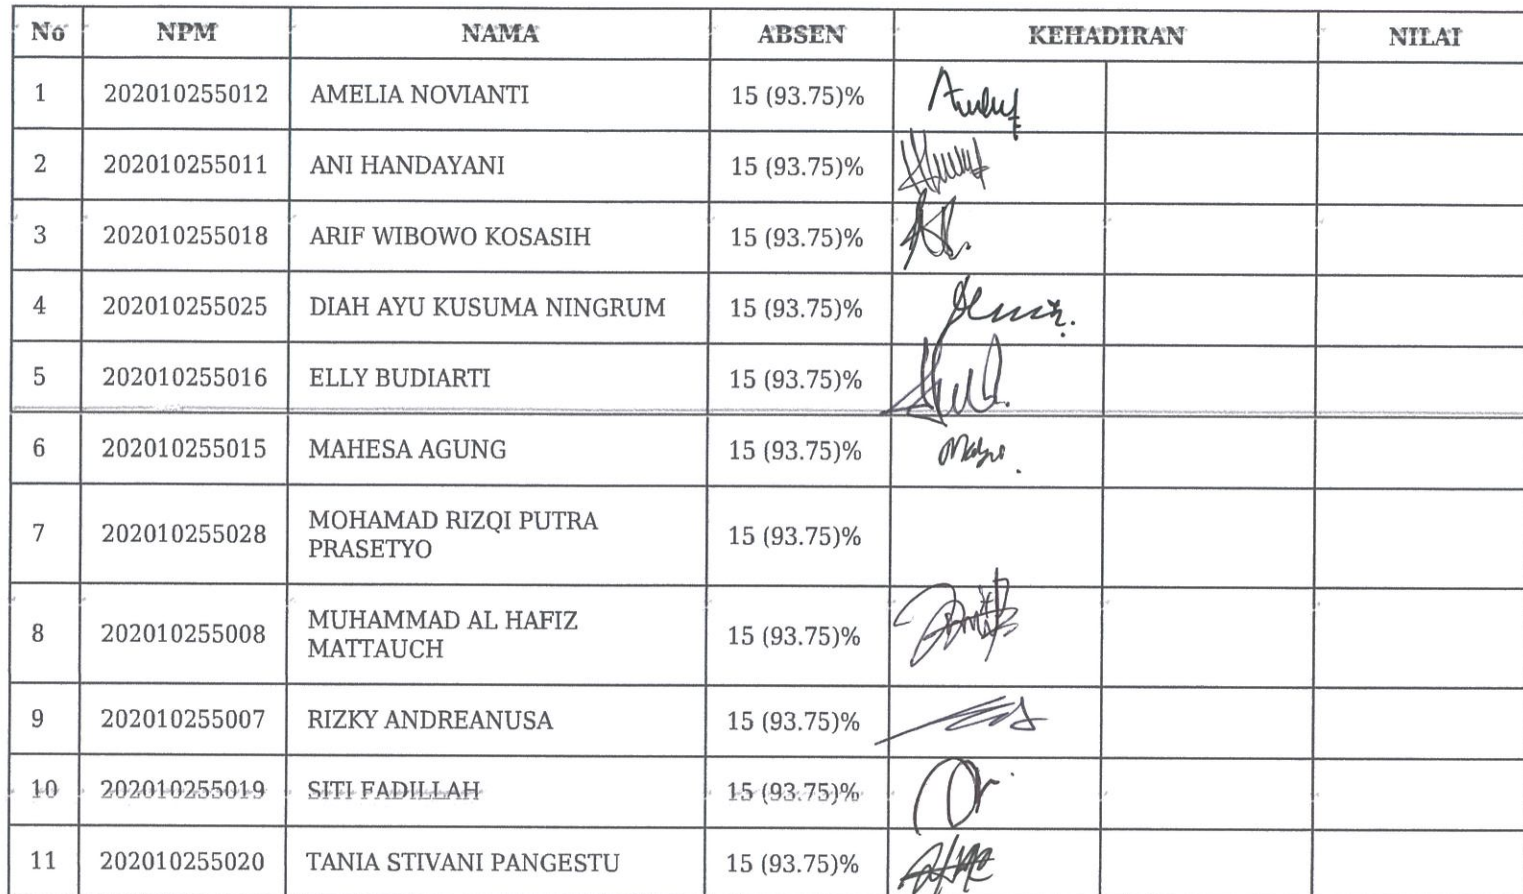 No NPM NAMA ABSEN KEHADIRAN NILAI
1 202010255012 AMELIA NOVIANTI 15 (93.75)%
2 202010255011 ANI HANDAYANI 15 (93.75)%
3 202010255018 ARIF WIBOWO KOSASIH 15 (93.75)%
4 202010255025 DIAH AYU KUSUMA NINGRUM 15 (93.75)%
5 202010255016 ELLY BUDIARTI 15 (93.75)%
6 202010255015 MAHESA AGUNG 15 (93.75)%
7 202010255028 MOHAMAD RIZQI PUTRA
PRASETYO 15 (93.75)%
8 202010255008 MUHAMMAD AL HAFIZ
MATTAUCH 15 (93.75)%
9 202010255007 RIZKY ANDREANUSA 15 (93.75)%
10 202010255019 SITI FADILLAH 15 (93.75)%
11 202010255020 TANIA STIVANI PANGESTU 15 (93.75)%